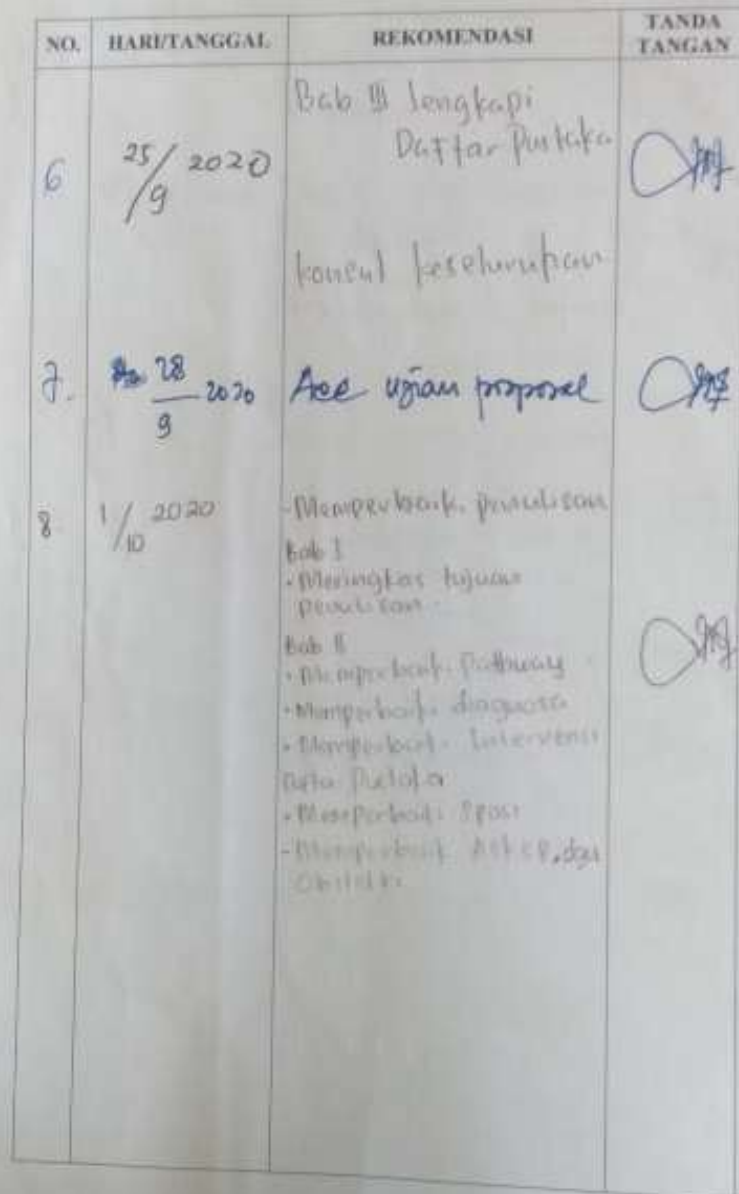 NO. HARI/TANGGAL REKOMENDASI TANDA TANGAN
Bab III lengkapi
Daftar Pustaka
6 25/9 2020
konsul keseluruhan
7. 28/9 2020 Acc ujian proposal
8. 1/10 2020 - Memperbaiki penulisan
Bab I
- Meringkas tujuan
penulisan
Bab II
- Memperbaiki Pathway
- Memperbaiki diagnosa
- Memperbaiki Intervensi
- Memperbaiki Spasi
- Memperbaiki Askep, dan